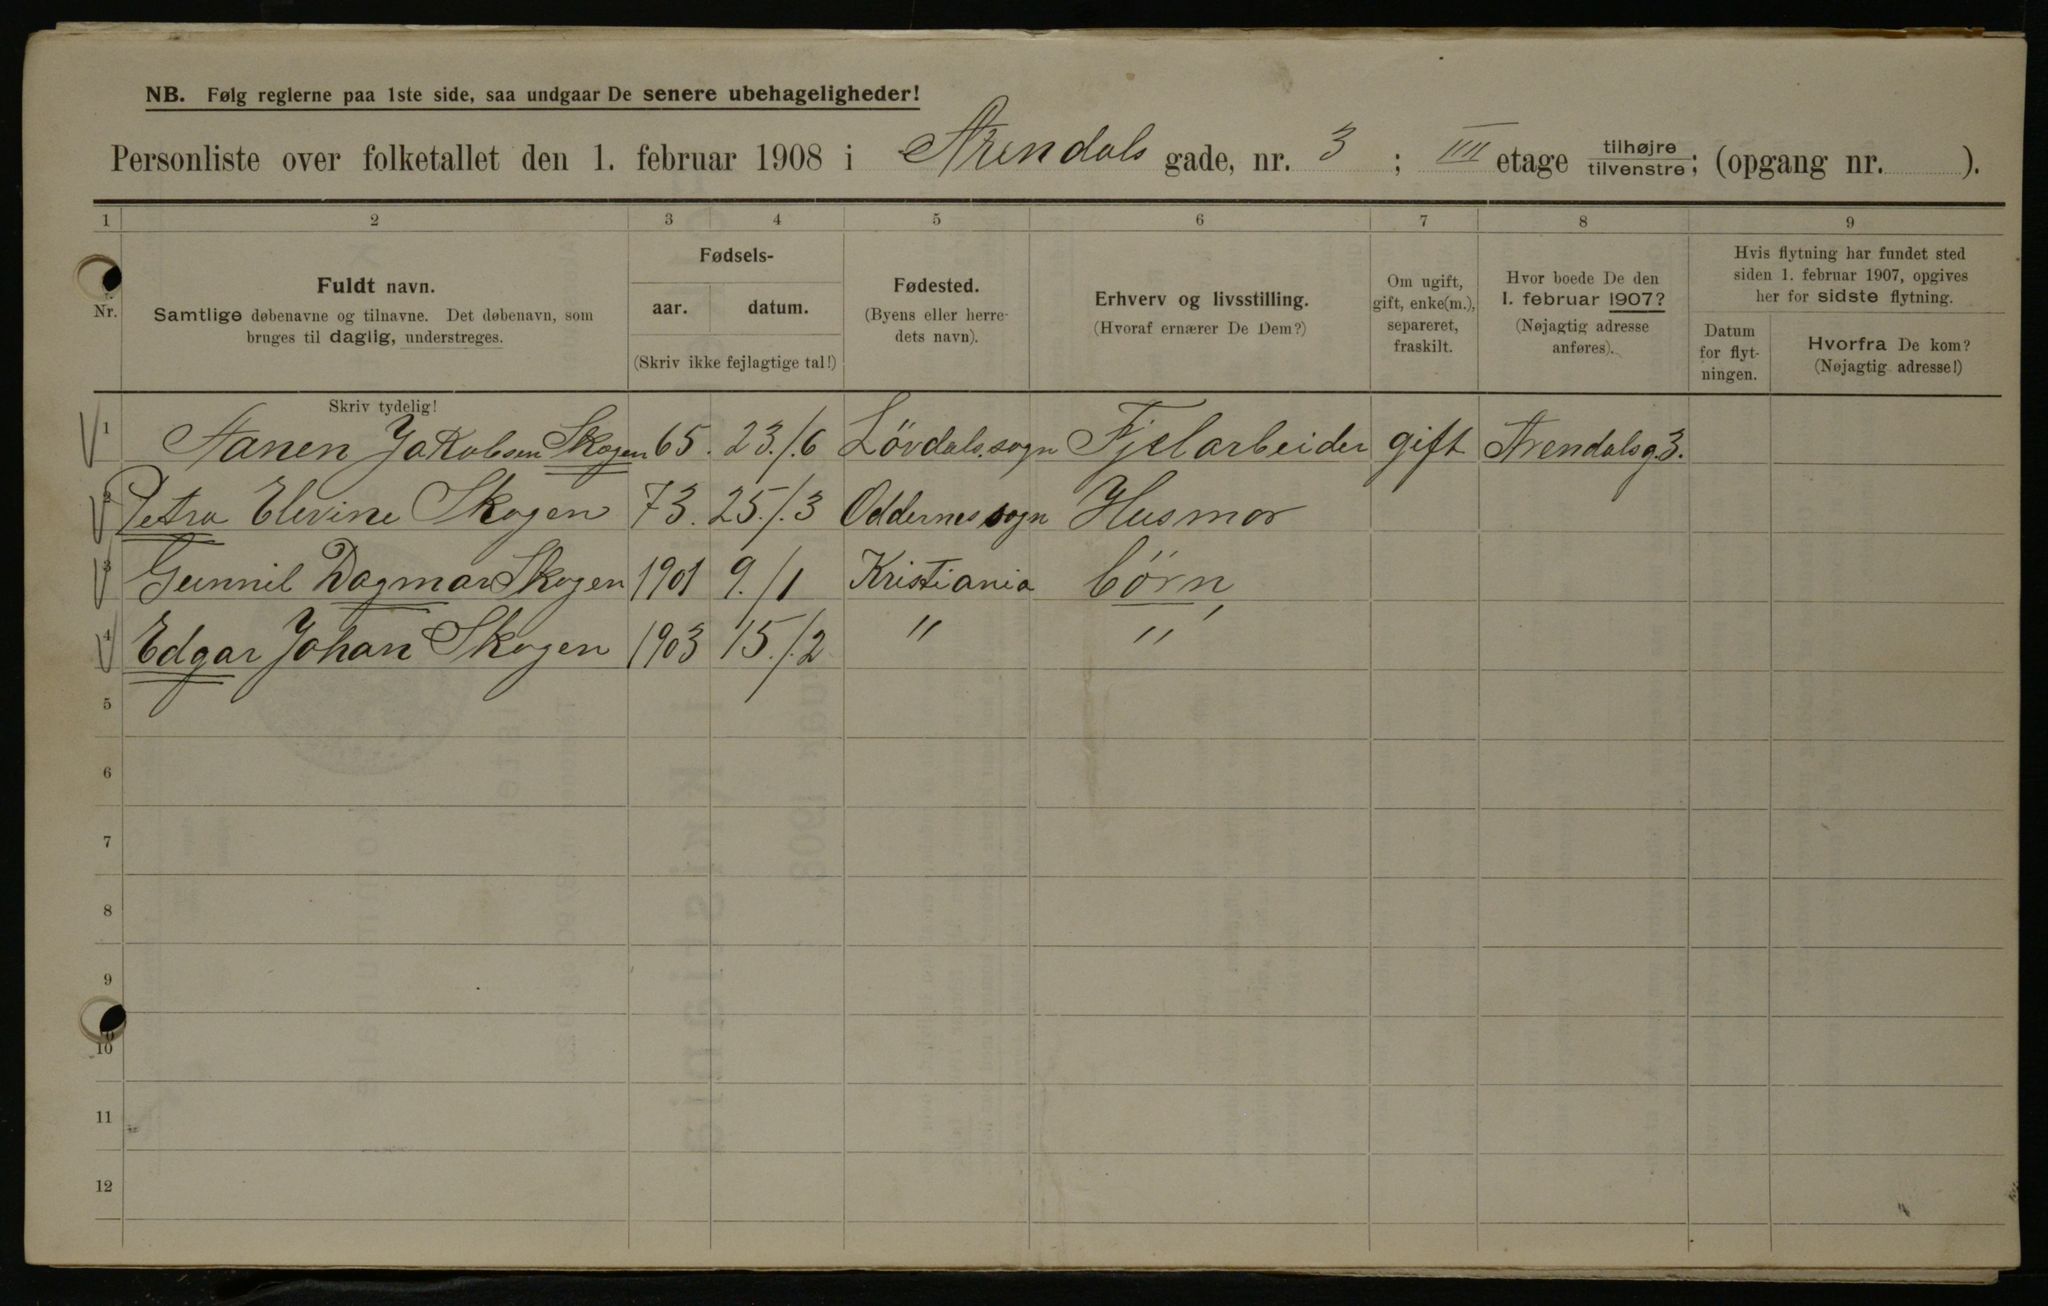 NB. Følg reglerne paa 1ste side, saa undgaar De senere ubehageligheder!
Personliste over folketallet den 1. februar 1908 i Arendals gade, nr. 3 ; III etage tilhøjre tilvenstre; (opgang nr. ).
1 2 3 4 5 6 7 8 9
Nr.
Fuldt navn.
Samtlige døbenavne og tilnavne. Det døbenavn, som
bruges til daglig, understreges.
Skriv tydelig!
Fødsels-
aar. datum.
(Skriv ikke fejlagtige tal!)
Fødested.
(Byens eller herre-
dets navn).
Erhverv og livsstilling.
(Hvoraf ernærer De Dem?)
Om ugift,
gift, enke(m.),
separeret,
fraskilt.
Hvor boede De den
1. februar 1907?
(Nøjagtig adresse
anføres).
Hvis flytning har fundet sted
siden 1. februar 1907, opgives
her for sidste flytning.
Datum
for flyt-
ningen.
Hvorfra De kom?
(Nøjagtig adresse!)
1 Aanen Jakobsen Skogen 65. 23./.6 Lövdals.sogn Fjelarbeider gift Arendalsg.3.
2 Petra Elevine Skogen 73. 25./.3 Oddernes sogn Husmor
3 Gunnil Dagmar Skogen 1901 9./1 Kristiania börn
4 Edgar Johan Skogen 1903 15./.2 " "
5
6
7
8
9
10
11
12